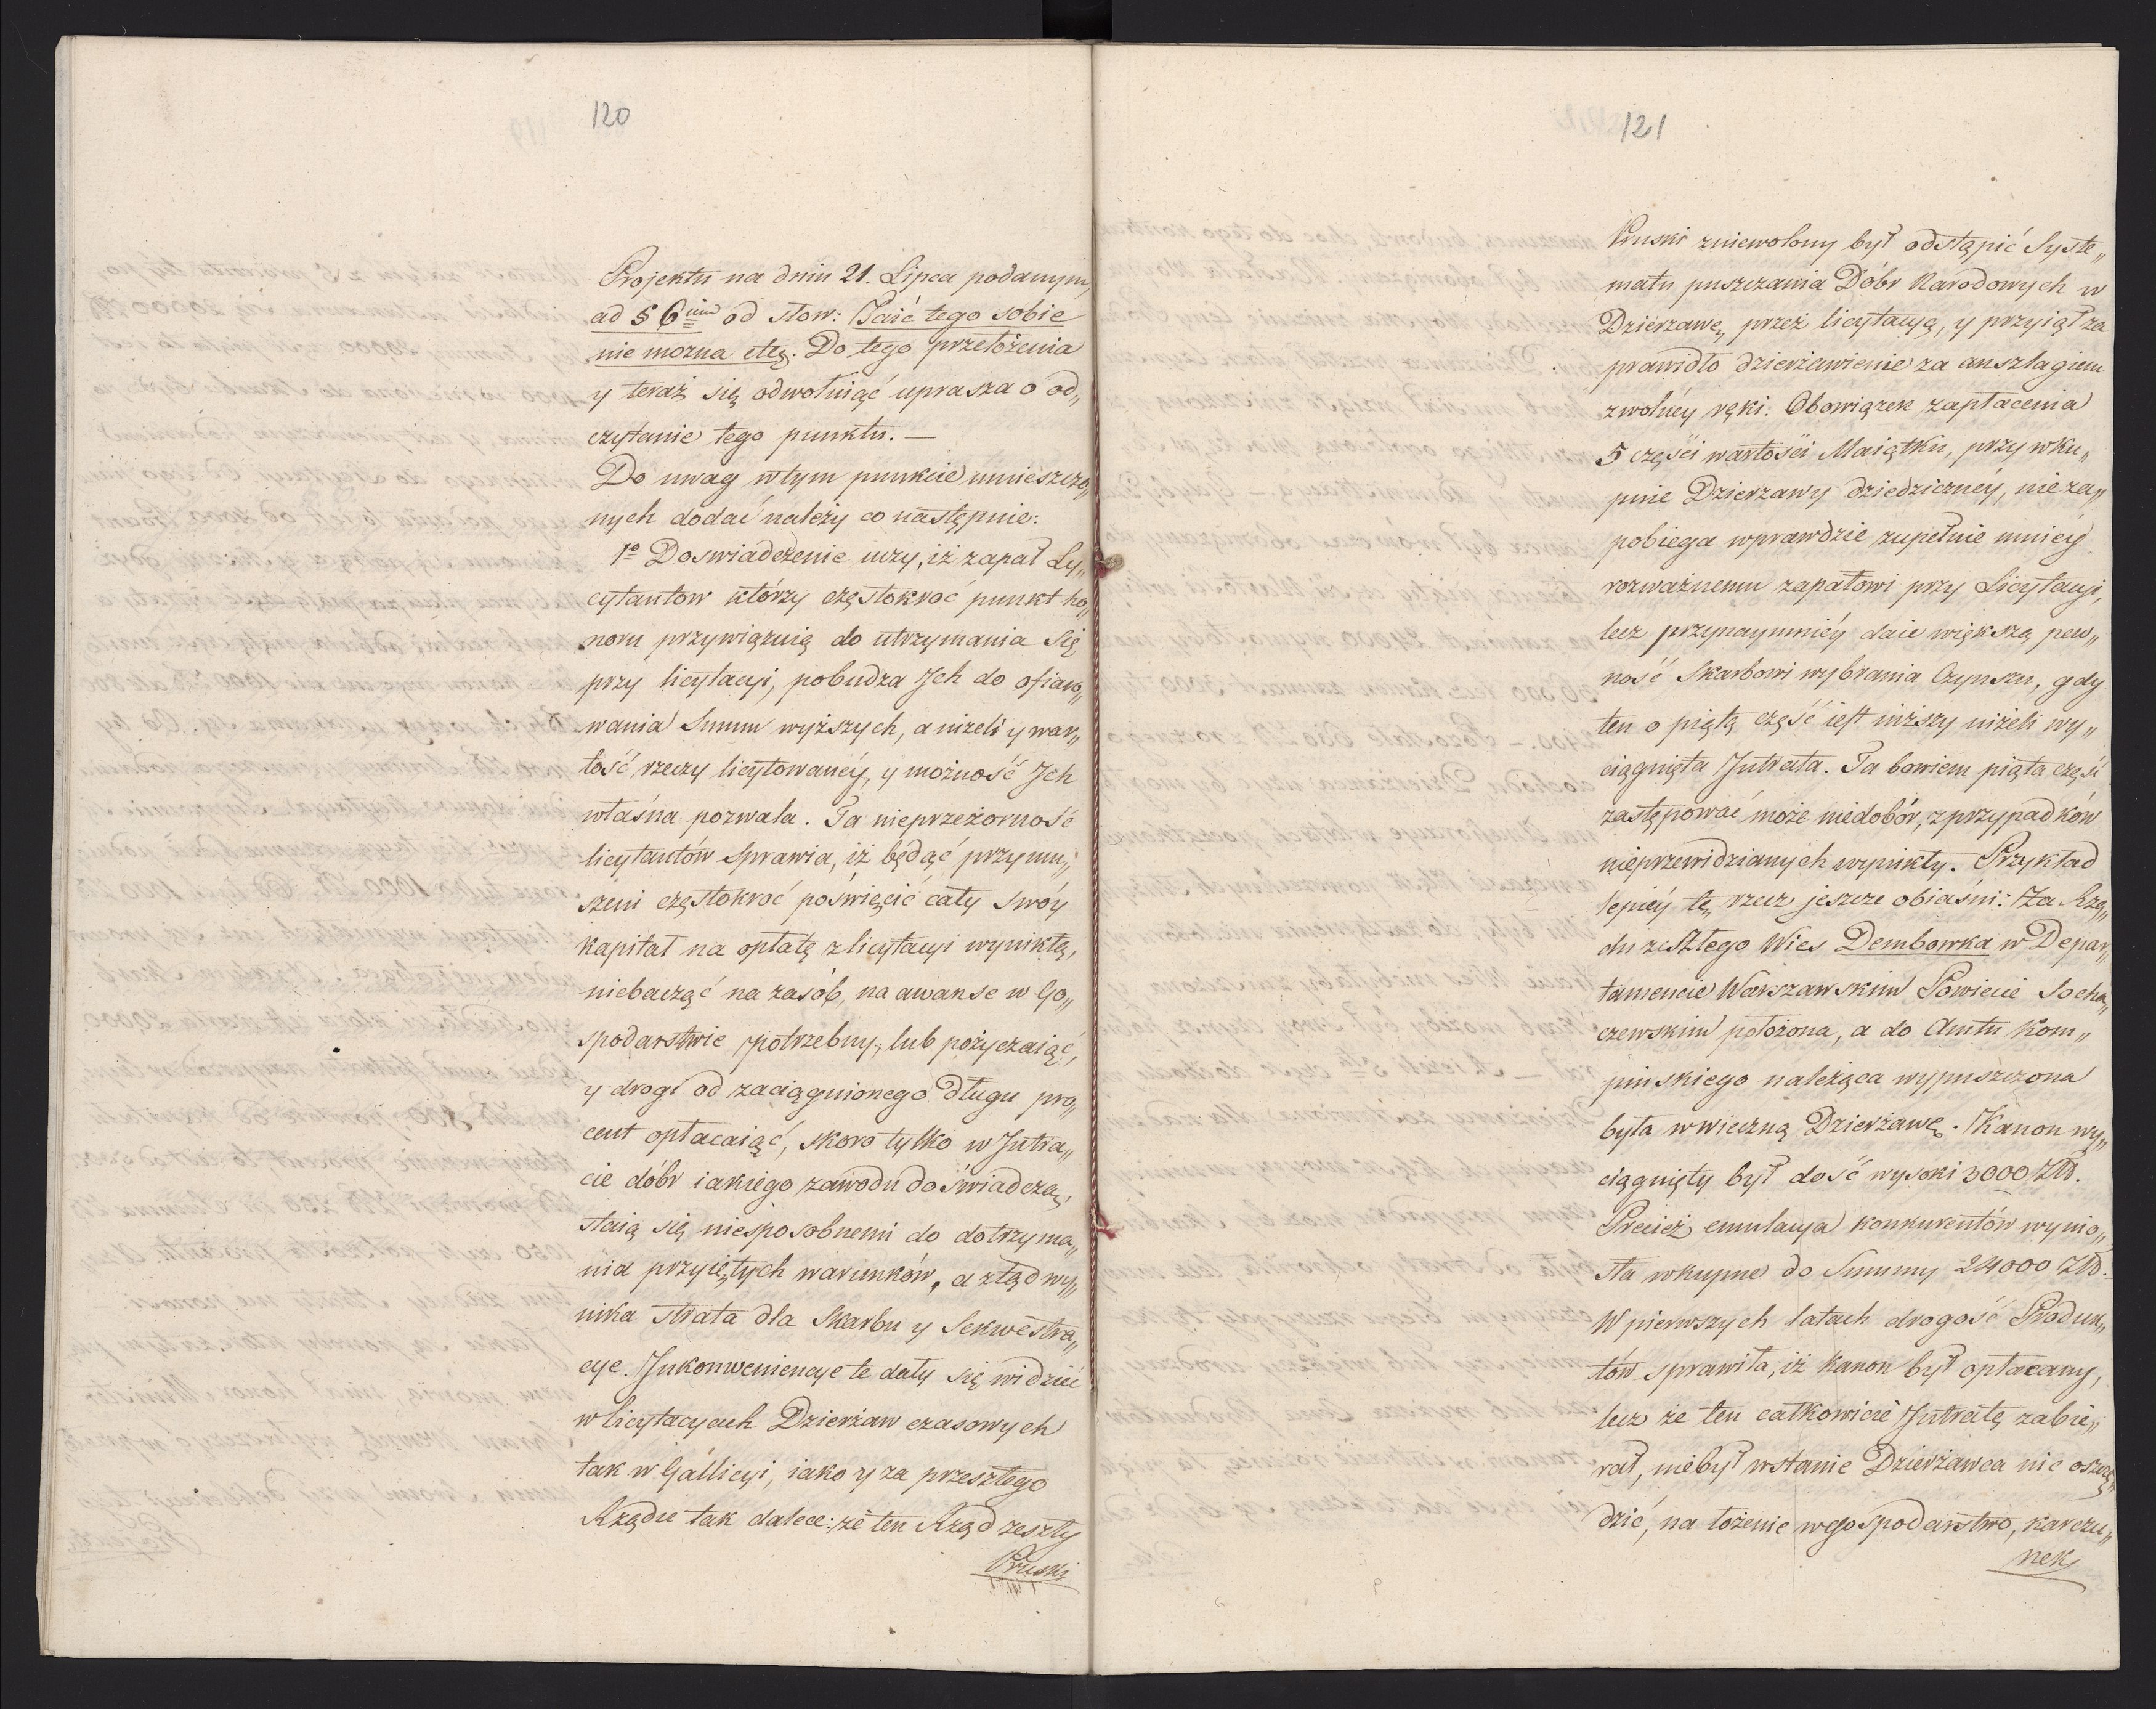 120
Projektu na dniu 21. Lipca podanym,
ad § 6um od słow: Taić tego sobie
nie mozna etc. Do tego przełożenia
y teraz się odwołuiąć uprasza o od„
czytanie tego punktu. —
Do uwag wtym punkcie umieszczo„
nych dodać należy co następnie:
1o Doswiadczenie uczy, iż zapał Ly„
cytantow którzy częstokroć punkt ho„
noru przywięzuią do utrzymania się
przy licytacyi, pobudza Ich do ofiaro„
wania Summ wyższych, a niżeli y war„
tość rzeczy licytowanéy, y możność Ich
własna pozwala. Ta nieprzezorność
licytantów sprawia, iż będąć przymu„
szeni częstokroć poświęcić cały swóy
kapitał na opłatę zlicytacyi wynikłą,
niebacząć na zasób, na awanse w Go„
spodarstwie potrzebny, lub pożyczaiąć,
y drogi od zaciągnionego Długu pro„
cent opłacaiąć, skoro tylko w Intra„
cie dóbr iakiego zawodu doświadczą,
staią się niesposobnemi do dotrzyma„
nia przyiętych warunków, a ztąd wy„
nika strata dla Skarbu y Sekwestra„
cye. Inkonweniencye te dały się widzieć
wlicytacyach Dzierżaw czasowych
tak w Gallicyi, iako y za przeszłego
Rządu tak dalece: że ten Rząd zeszły
Pruski
121
Pruski zniewolony był odstąpić Syste„
matu puszczania Dóbr Narodowych w
Dzierzawę, przez licytacyą, y przyiął za
prawidło dzierżawienie za anszlagiem
zwolnéy ręki. Obowiązek zapłacenia
5 częśći wartości Maiątku, przy wku„
pnie Dzierzawy dziedzicznéy, nieza„
pobiega wprawdzie zupełnie mniéy
rozważnemu zapałowi przy Licytacyi,
lecz przynaymniéy daie większą pew„
ność Skarbowi wybrania Czynszu, gdy
ten o piątą część iest niższy niżeli wy„
ciągnięta Intrata. Ta bowiem piąta część
zastępować może niedobór, zprzypadków
nieprzewidzianych wynikły. Przykład
lepiéy tę rzecz jeszcze obiaśni: Za Rzą„
du zeszłego Wies Dembowka w Depar„
tamencie Warszawskim Powiecie Socha„
czewskim położona, a do Amtu Kom„
pinskiego należąca wypuszczona
była wwieczną Dzierżawę. Kanon wy„
ciągnięty był dość wysoki 3000 Złł.
Przecież emulacya konkurentów wynio„
sła wkupne do Summy 24000 Złł.
W pierwszych latach drogość Produk„
tów sprawiła, iż kanon był opłacany,
lecz że ten całkowicie Intratę zabie„
rał, niebył wstanie Dzierżawca nic oszczę„
dzić, na łożenie wgospodarstwo, karczu„
nek